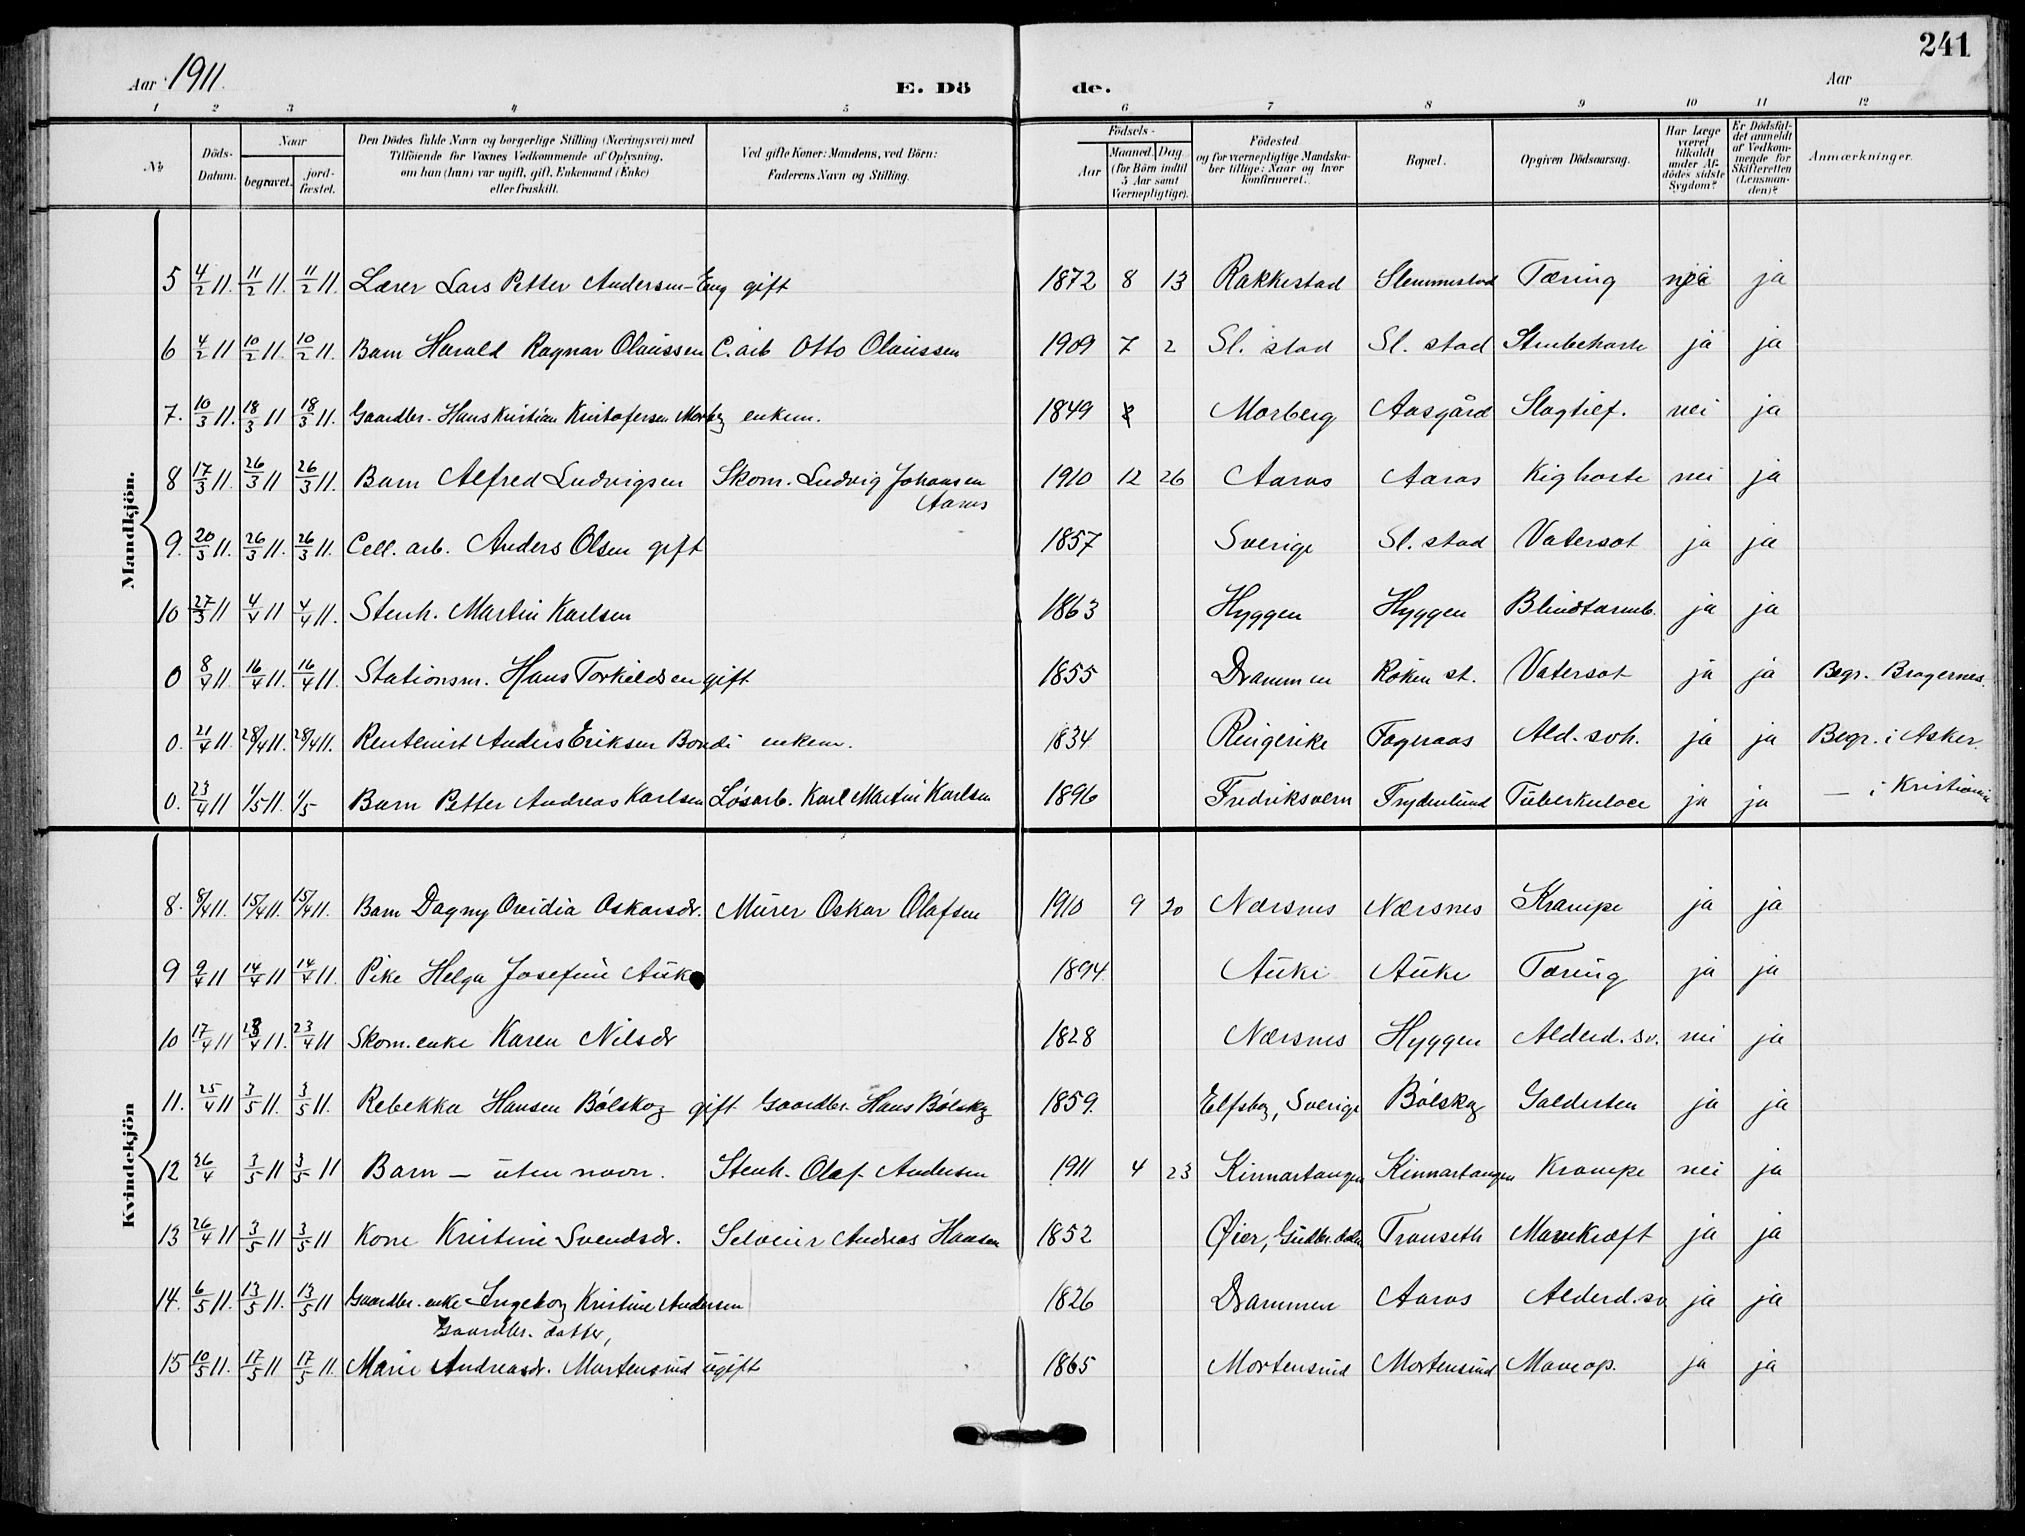 241
Aar 1911.
E. Dö de.
Aar
1 2 3 4 5 6 7 8 9 10 11 12
No
Döds-Datum.
Naar
begravet.
jord-fæstet.
Den Dödes fulde Navn og borgerlige Stilling (Næringsvei) med
Tilföiende for Voxnes Vedkommende af Oplysning,
om han (hun) var ugift, gift, Enkemand (Enke)
eller fraskilt.
Ved gifte Koner: Mandens, ved Börn:
Faderens Navn og Stilling.
Födsels-
Aar
Maaned. Dag.
(for Börn indtil
5 Aar samt
Værnepligtige).
Födested
og for værnepligtige Mandska-
ber tillige: Naar og hvor
konfirmeret.
Bopæl.
Opgiven Dödsaarsag.
Har Læge
været
tilkaldt
under Af-
dödes sidste
Sygdom?
Er Dödsfal-
det anmeldt
af Vedkom-
mende for
Skifteretten
(Lensman-
den)?
Anmærkninger.
Mandkjön.
5 4/2 11. 11/2 11. 11/2 11. Lærer Lars Petter Andersen-Eng gift 1872 8 13 Rakkestad Slemmestad Tæring nei ja
6 4/2 11 10/2 11. 10/2 11. Barn Harald Ragnar Olaussen C. arb Otto Olaussen 1909 7 2 Sl. stad Sl. stad Strubehoste ja ja
7. 10/3 11. 18/3 11 18/3 11. Gaardbr. Hans Kristian Kristofersen Morberg enkem. 1849 Morberg Aasgård Slagtilf. nei ja
8 17/3 11. 26/3 11 26/3 11. Barn Alfred Ludvigsen Skom. Ludvig Johansen Aaros 1910 12 26 Aaros Aaros Kighoste nei ja
9. 20/3 11. 26/3 11. 26/3 11. Cell. arb. Anders Olsen gift 1857 Sverige Sl. stad Vatersot ja ja
10 27/3 11 4/4 11 4/4 11. Stenh. Martin Karlsen 1863 Hyggen Hyggen Blindtarmb. ja ja
0 8/4 11. 16/4 11. 16/4 11. Stationsm. Hans Torkildsen gift 1855 Drammen Røken st. Vatersot ja ja Begr. Bragernes.
0. 21/4 11. 28/4 11. 28/4 11. Rentenist Anders Eriksen Bondi enkem. 1834 Ringerike Fagraas Ald. svh. ja ja Begr. i Asker.
0. 23/4 11 1/5 11. 1/5 Barn Petter Andreas Karlsen Løsarb. Karl Martin Karlsen 1896 Fredriksvern Frydenlund Tuberkuloce ja ja — i Kristiania
Kvindekjön
8. 8/4 11. 15/4 11. 15/4 11. Barn Dagny Ovidia Oskarsdr. Murer Oskar Olafsen 1910 9 20 Nærsnes Nærsnes Krampe ja ja
9 9/4 11 14/4 11 14/4 11. Pike Helga Josefine Auke 1894. Auke Auke Tæring ja ja
10 17/4 11 23/4 11. 23/4 11 Skom. enke Karen Nilsdr 1828 Nærsnes Hyggen Alderd. sv. nei ja
11. 25/4 11 3/5 11. 3/5 11. Rebekka Hansen Bølskog gift Gaardbr. Hans Bølskog 1859. Elfsborg, Sverige Bølskog Galdesten ja ja
12 26/4 3/5 11 3/5 11 Barn — uten navn. Stenh. Olaf Andersen 1911 4 23 Kinnartangen Kinnartangen Krampe nei ja
13 26/4 11 3/5 11 3/5 11 Kone Kristine Svendsdr. Selveier Andreas Hansen 1852 Øier, Gudbr. dalen Transeth Mavekræft ja ja
14. 6/5 11. 13/5 11. 13/5 11 Gaardbr. enke Ingeborg Kristine Andersen 1826 Drammen Aaros Alderd. sv ja ja
Gaardbr. datter,
15 10/5 11. 17/5 11 17/5 11. Marie Andreasdr. Mortensrud ugift 1865 Mortensrud Mortensrud Mave op. ja ja